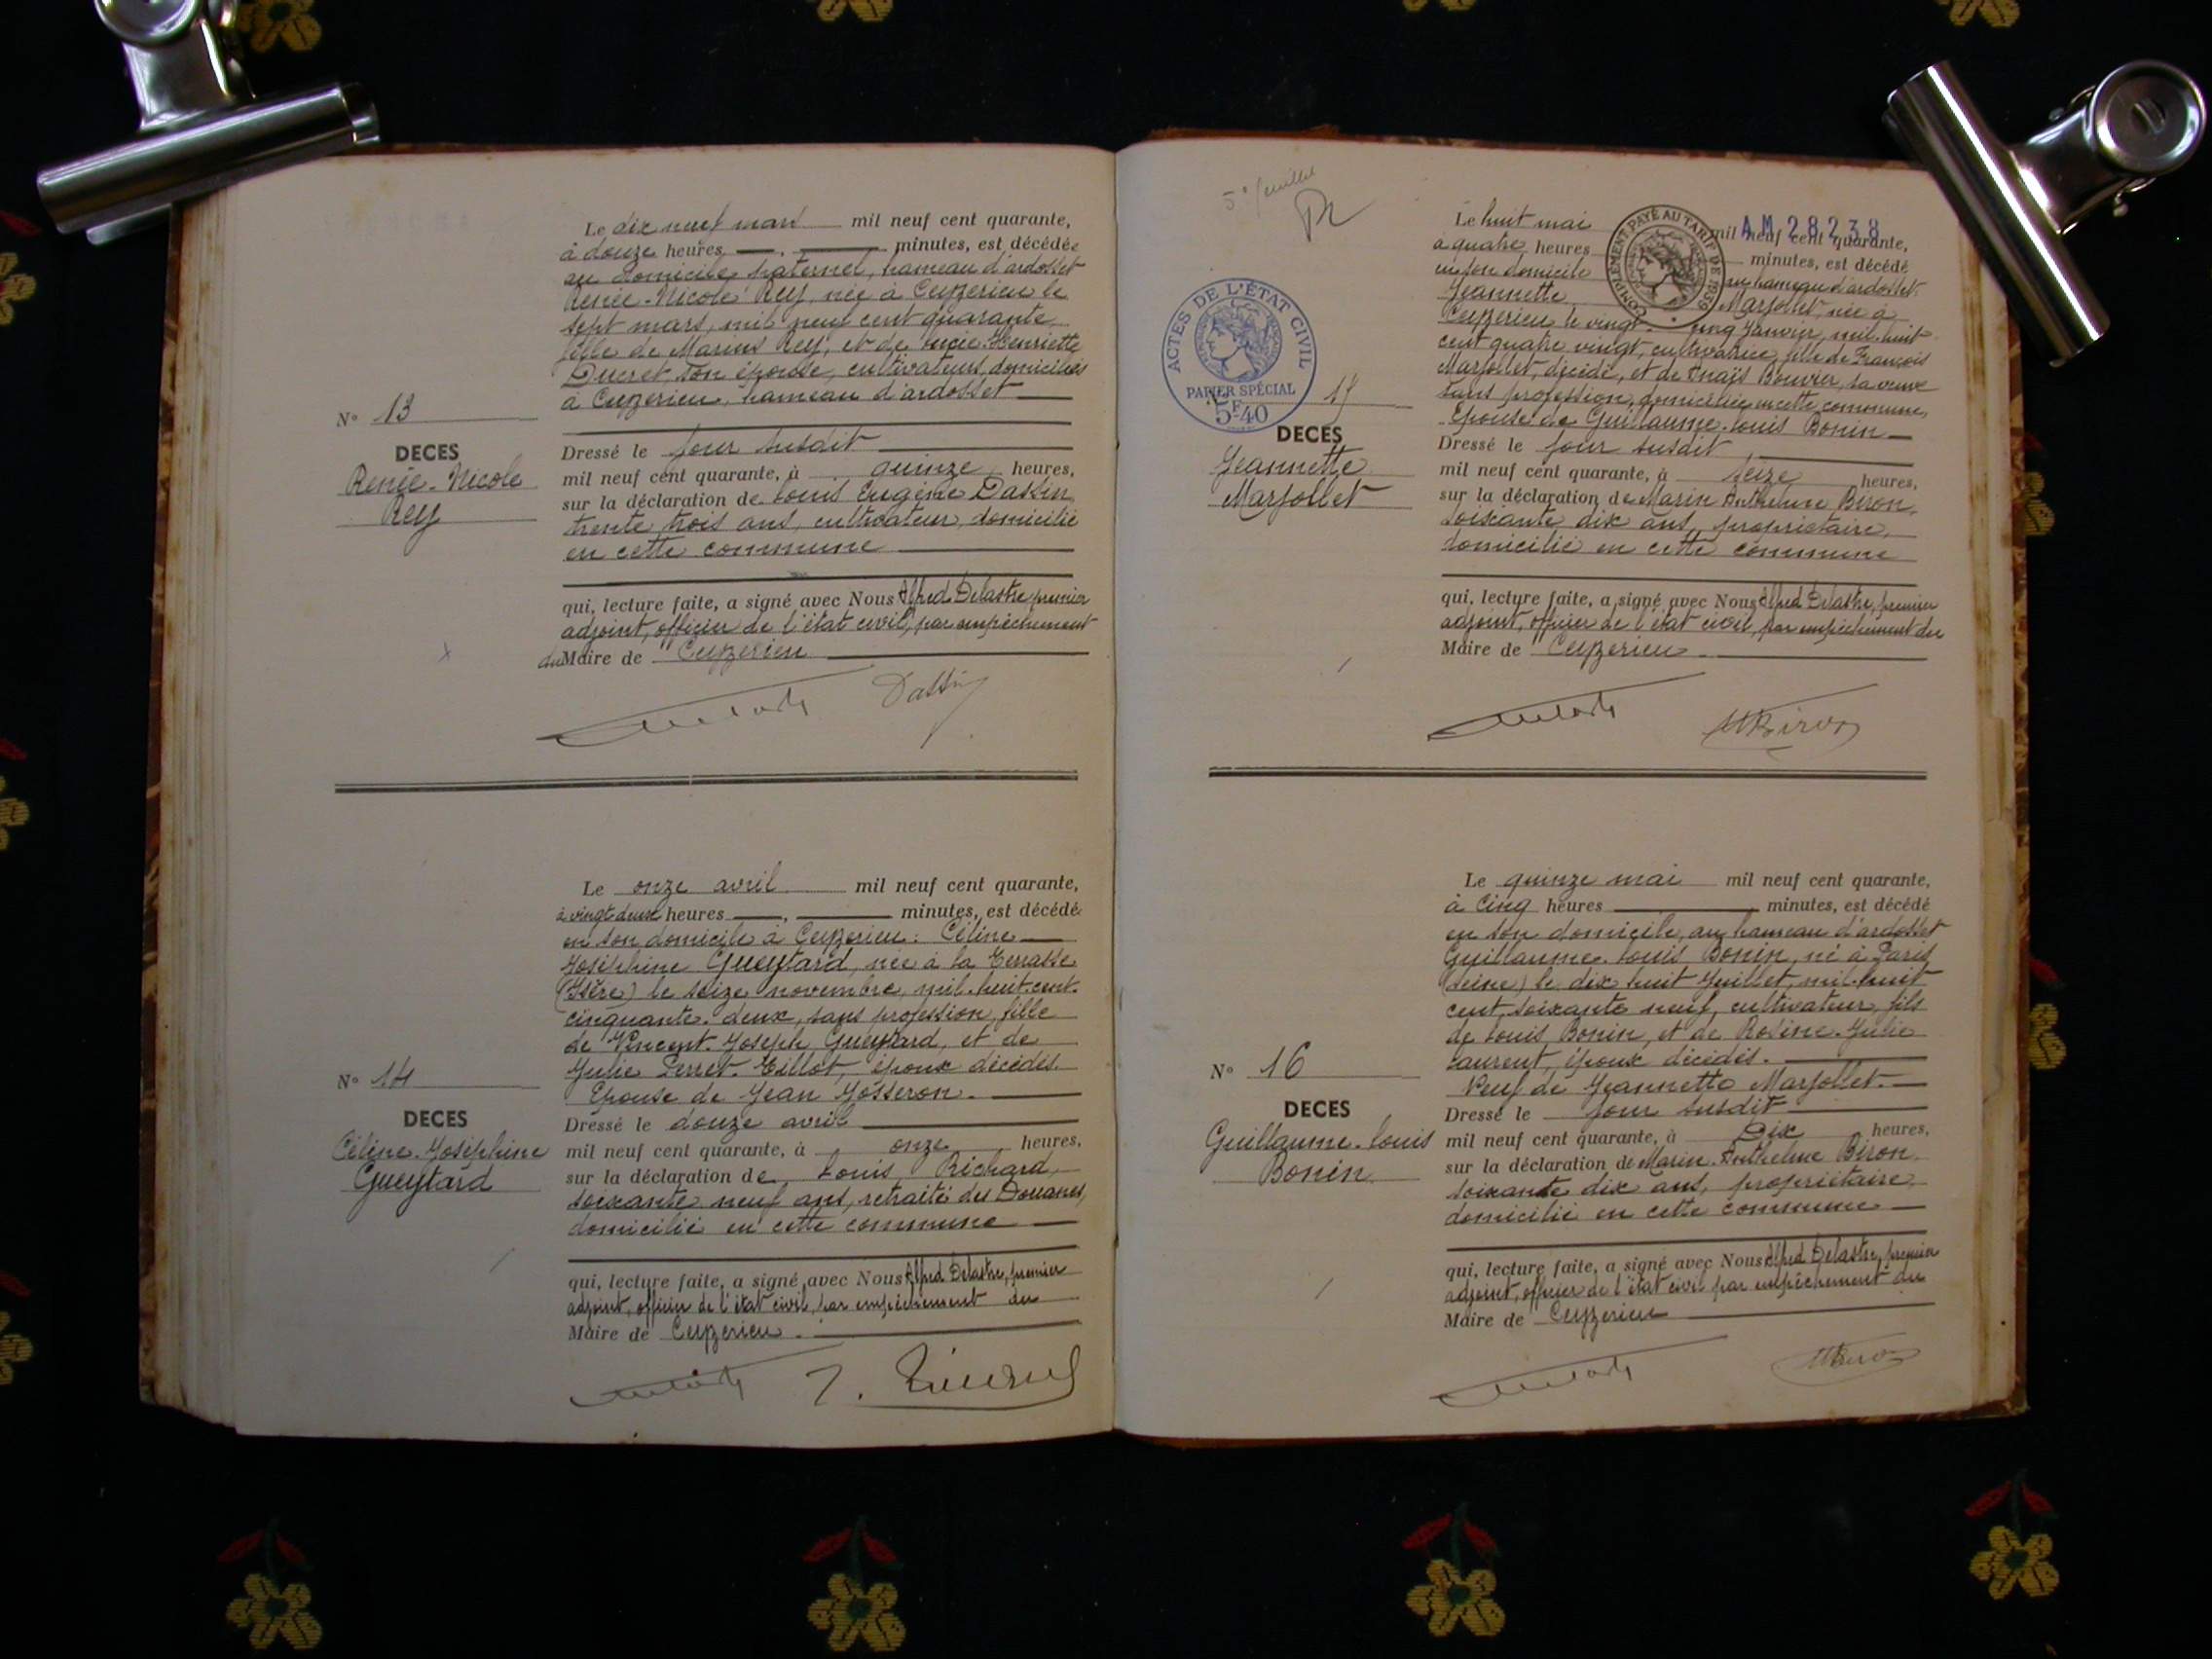 Le dix neuf mars mil neuf cent quarante,
à douze heures, minutes, est décédée
au domicile paternel, hameau d'ardosset
Renée-Nicole Rey, née à Ceyzerieu le
sept mars, mil neuf cent quarante
fille de Marius Rey, et de Lucie-Henriette
Ducret, son épouse, cultivateurs, domiciliés
à Ceyzerieu, hameau d'ardosset
N° 13
DECES
Renée-Nicole
Rey
Dressé le jour susdit
mil neuf cent quarante, à quinze heures,
sur la déclaration de Louis Eugène Dassin
trente trois ans, cultivateur, domicilié
en cette commune
qui, lecture faite, a signé avec Nous Alfred Delastre, premier
adjoint, officier de l'état civil, par empêchement
du Maire de Ceyzerieu
Dassin
Le onze avril mil neuf cent quarante,
à vingt deux heures, minutes, est décédé
en son domicile à Ceyzerieu. Céline
Joséphine Gueytard, née à la Terrasse
(Isère) le seize novembre, mil-huit-cent-
cinquante-deux, sans profession, fille
de Vincent-Joseph Gueytard, et de
Julie Perret-Tillot, époux décédés.
Epouse de Jean Josseron.
N° 14
DECES
Céline-Joséphine
Gueytard
Dressé le douze avril
mil neuf cent quarante, à onze heures,
sur la déclaration de Louis Richard,
soixante neuf ans, retraité des Douanes,
domicilié en cette commune
qui, lecture faite, a signé avec Nous Alfred Delastre, premier
adjoint, officier de l'état civil, par empêchement du
Maire de Ceyzerieu.
5e feuillet
AM 28238
COMPLÉMENT PAYÉ AU TARIF DE 1939
Le huit mai mil neuf cent quarante,
à quatre heures minutes, est décédé
en son domicile au hameau d'ardosset.
Jeannette Marjollet, née à
Ceyzerieu le vingt-cinq Janvier, mil-huit-
cent quatre vingt, cultivatrice, fille de François
Marjollet, décédé, et de Anaïs Bouvier, sa veuve
sans profession, domiciliée en cette commune,
Epouse de Guillaume-Louis Bonin
ACTES DE L'ÉTAT CIVIL
PAPIER SPÉCIAL
5F40
15
DECES
Jeannette
Marjollet
Dressé le jour susdit
mil neuf cent quarante, à seize heures,
sur la déclaration de Marin Anthelme Biron,
soixante dix ans, propriétaire,
domicilié en cette commune
qui, lecture faite, a signé avec Nous Alfred Delastre, premier
adjoint, officier de l'état civil, par empêchement du
Maire de Ceyzerieu
MBiron
Le quinze mai mil neuf cent quarante,
à cinq heures minutes, est décédé
en son domicile, au hameau d'ardosset
Guillaume-Louis Bonin, né à Paris
(Seine) le dix huit Juillet, mil-huit
cent, soixante neuf, cultivateur, fils
de Louis Bonin, et de Rosine-Julie
Laurent, époux décédés.
Veuf de Jeannette Marjollet.
N° 16
DECES
Guillaume-Louis
Bonin
Dressé le jour susdit
mil neuf cent quarante, à Dix heures,
sur la déclaration de Marin-Anthelme Biron
soixante dix ans, propriétaire
domicilié en cette commune
qui, lecture faite, a signé avec Nous Alfred Delastre, premier
adjoint, officier de l'état civil par empêchement du
Maire de Ceyzerieu
MBiron